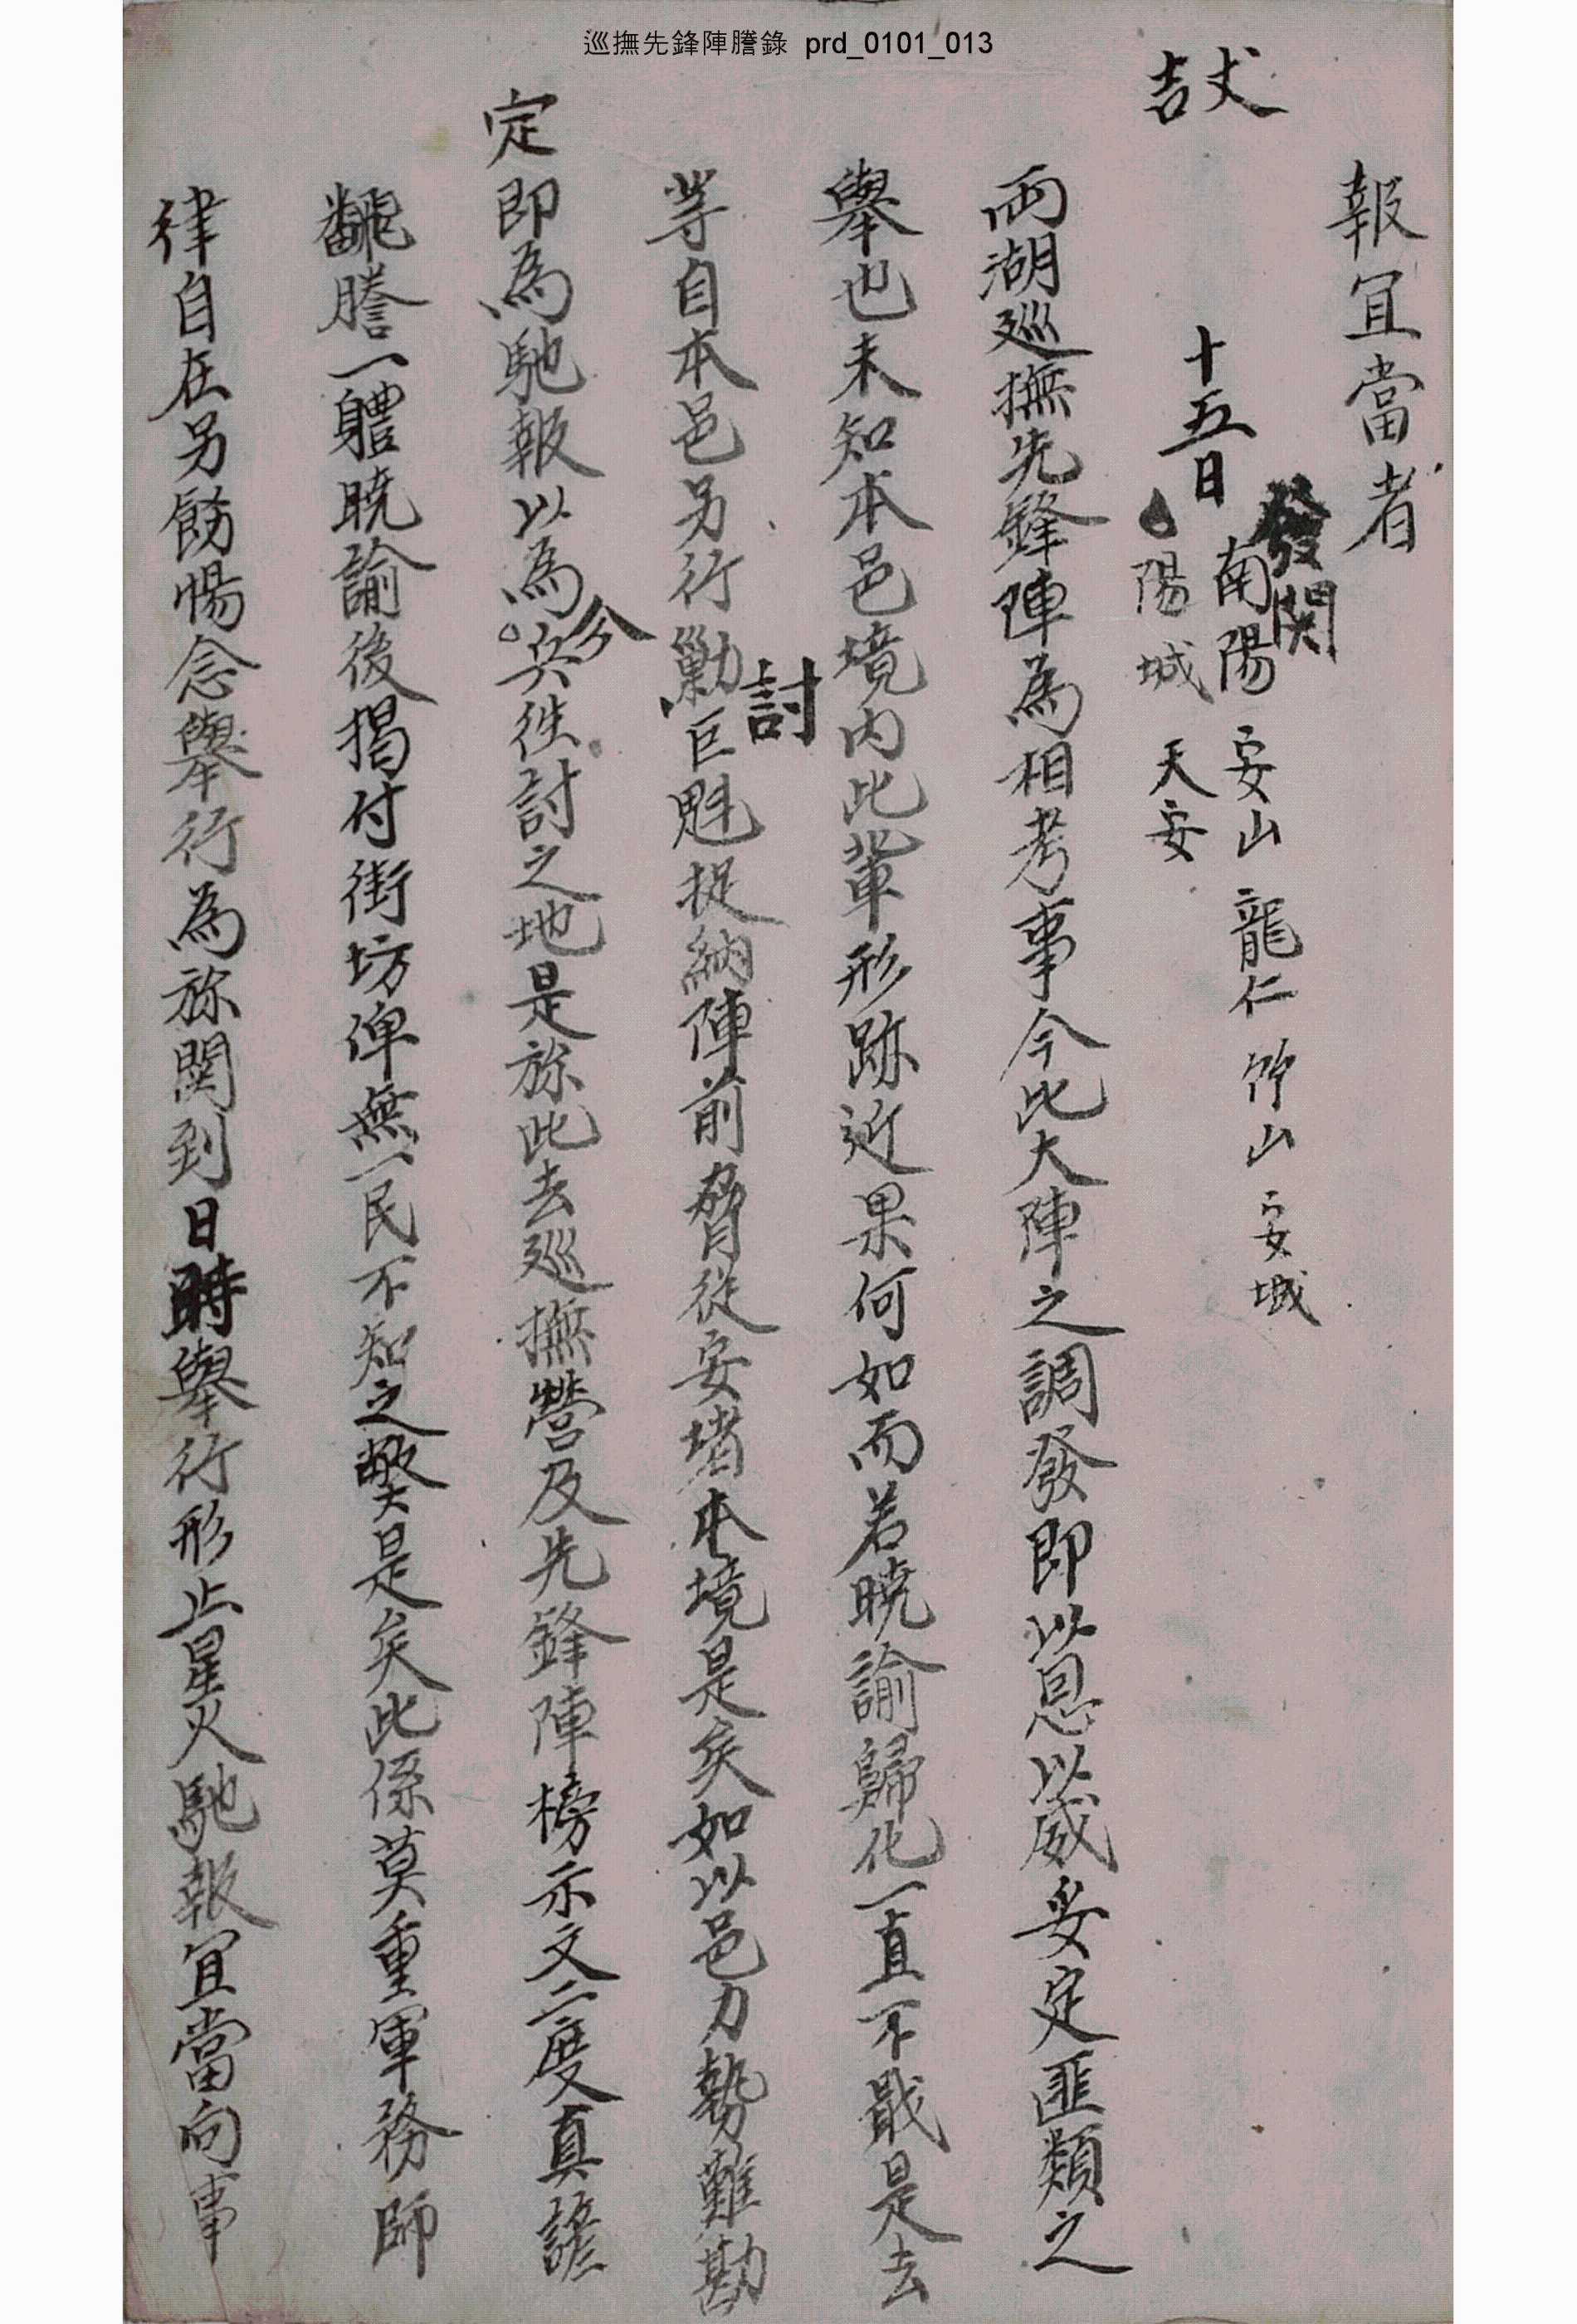 巡撫先鋒陣謄錄 prd_0101_013
報宜當者
發関
十五日 南陽 安山 龍仁 竹山 安城
陽城 天安
兩湖巡撫先鋒陣爲相考事今此大陣之調發即以恩以威妥定匪類之
擧也未知本邑境內此輩形跡近果何如而若曉諭歸化一直不戢是去
等自本邑另行勦討巨魁捉納陣前脅從安堵本境是矣如以邑力勢難勘
定即爲馳報以爲分兵徃討之地是旀此去巡撫營及先鋒陣榜示文二度眞諺
飜謄一軆曉諭後揭付街坊俾無一民不知之獘是矣此係莫重軍務師
律自在另飭惕念擧行爲旀関到日時擧行形止星火馳報宜當向事